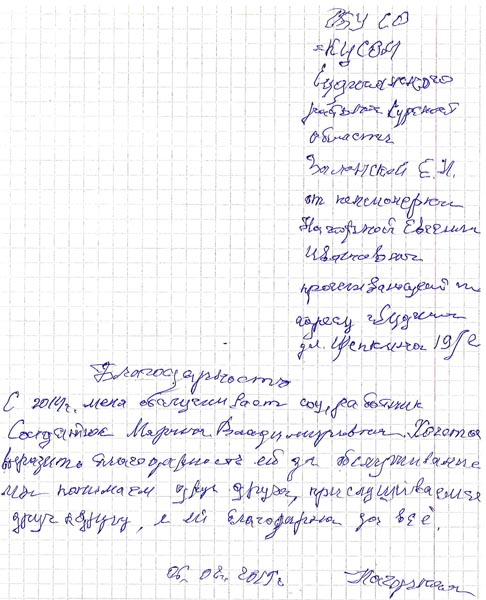 ОБУ СО
"КЦСОН
Суджанского
района Курской
области
Заленской Е.И.
от пенсионерки
Нагорной Евгении
Ивановны
проживающей по
адресу г. Суджа
ул. Щепкина
Благодарность
С 2014г. меня обслуживает соц.работник
Марина Владимировна. Хочется
выразить благодарность ей за обслуживание
мы понимаем друг друга, прислушиваемся
друг к другу, я ей благодарна за всё.
2019г. Нагорная